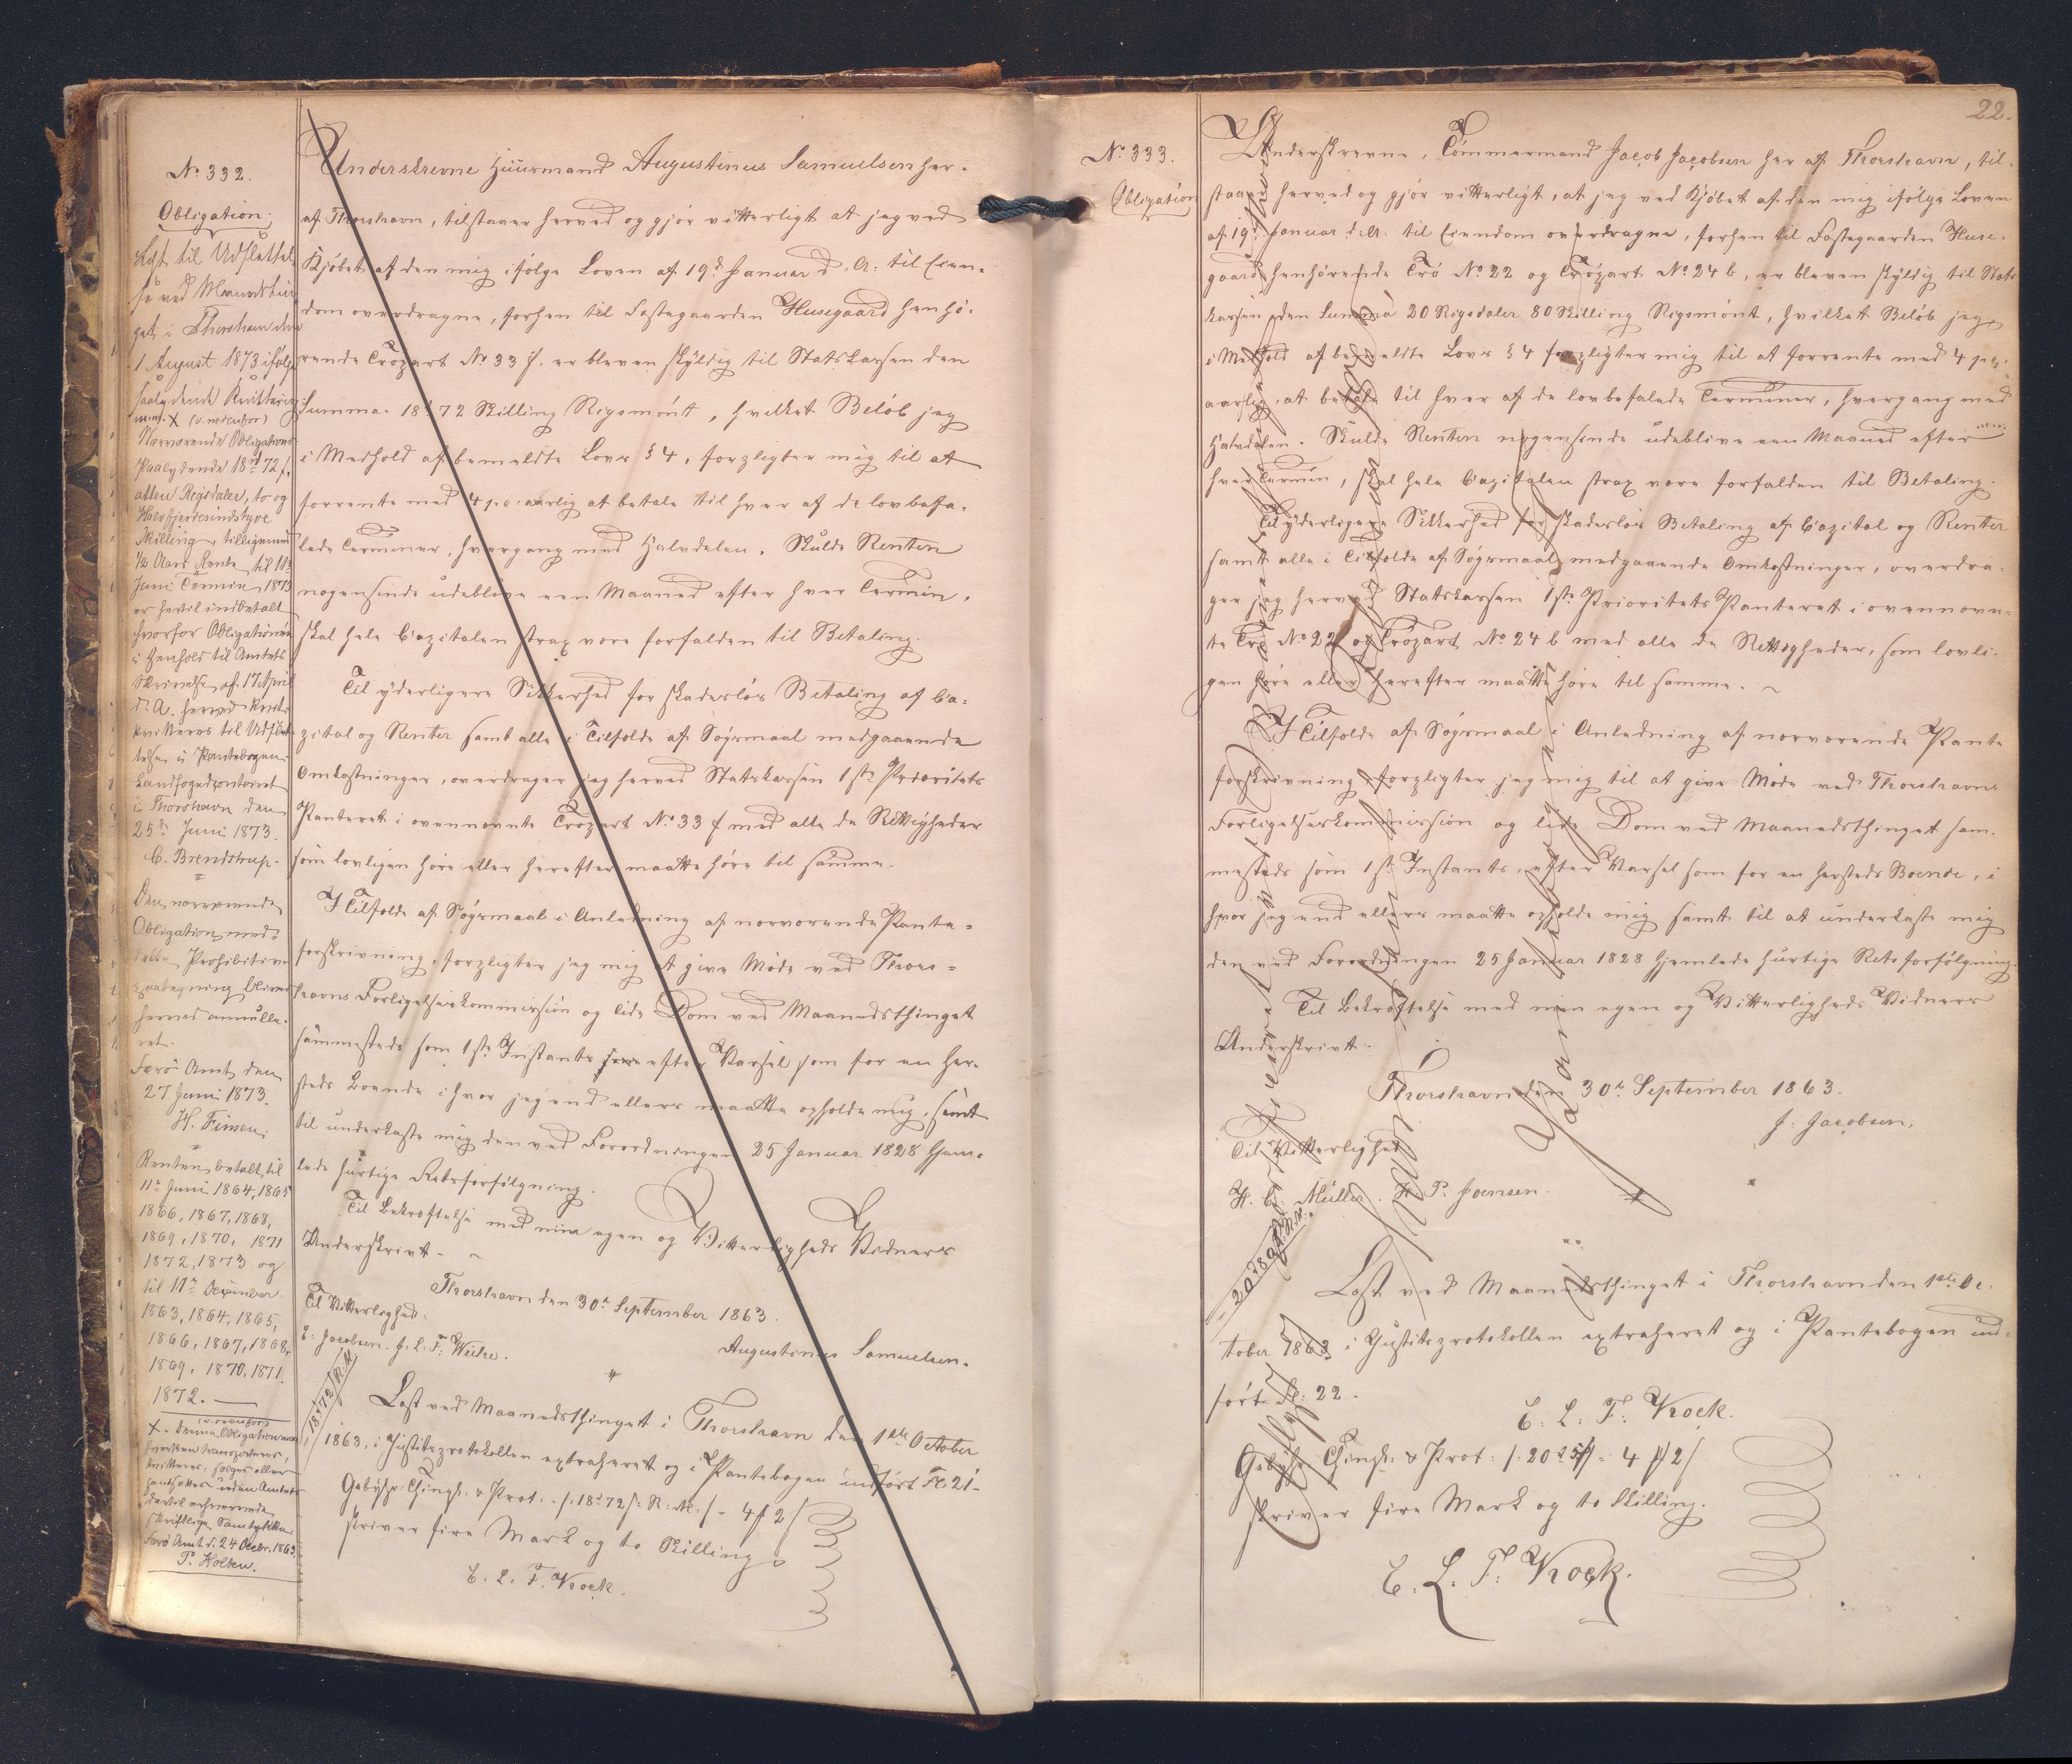 No 332.
Obligation.
Læst til Udslettel
se ved Maanedsthin
get i Thorshavn den
1 August 1873 ifølge
saalydende Kvittering
m.m. X (v. nedenfor)
Nærværende Obligation
Paalydende 18 rd 72 s,
atten Rigsdaler, to og
Halvfjerdesindstyve
Skilling, tilligemed
1/2 Aars Rente til 11te
Juni Termin 1873
er hertil indbetalt
hvorfor Obligationen
i Henhold til Amtets
Skrivelse af 17 April
d. A. herved
kvitteres til Udslet-
telse i Pantebogen.
Landfogedcontoiret
i Thorshavn den
25de Juni 1873.
C. Brendstrup.
Den nærværende
Obligation med-
delte Prohibitive
paategning bliver
herved annulle-
ret.
Færø Amt den
27 Juni 1873.
H. Finsen.
Renten betalt til
11te Juni 1864, 1865
1866, 1867, 1868,
1869, 1870, 1871
1872, 1873 og
til 11te December
1863, 1864, 1865,
1866, 1867, 1868,
1869, 1870, 1871.
1872.
(v. ovenfor)
X. Denne Obligation maa
hverken transporteres,
kvitteres, sælges eller
pantsættes uden Amtets
dertil erhvervende
skriftlige Samtykke.
Færø Amt d. 24 Decbr. 1863.
P. Holten.
Underskrevne Huusmand Augustinus Samuelsen her-
af Thorshavn, tilstaaer herved og gjør vitterligt at jeg ved
Kjøbet af den mig ifølge Loven af 19d Januar d: A: til Eien-
dom overdragne, forhen til Fæstegaarden Husegaard henhø-
rende Trøpart No 33 f. er bleven skyldig til Statskassen den
Summa 18 rd 72 Skilling Rigsmønt, hvilket Beløb jeg
i Medhold af bemeldte Lovs § 4, forpligter mig til at
forrente med 4 pc: aarlig at betale til hver af de lovbefa-
lede Terminer, hvergang med Halvdelen. Skulde Renten
nogensinde udeblive een Maaned efter hver Termin,
skal hele Capitalen strax være forfalden til Betaling.
Til yderligere Sikkerhed for skadesløs Betaling af Ca-
pital og Renter samt alle i Tilfælde af Søgsmaal medgaaende
Omkostninger, overdrager jeg herved Statskassen 1ste Prioritets
Panteret i ovennævnte Trøpart No 33 f med alle de Rettigheder
som lovligen høre eller herefter maatte høre til samme.
I Tilfælde af Søgsmaal i Anledning af nærværende Pante-
forskrivning, forpligter jeg mig at give Møde ved Thors-
havns Forligelseskommission og lide Dom ved Maanedsthinget
sammesteds som 1ste Instants som efter Varsel som for en her-
steds Boende, i hvor jeg end ellers maatte opholde mig, samt
til underkaste mig den ved Forordningen 25 Januar 1828 hjem-
lede hurtige Retsforfølgning.
Til Bekræftelse med min egen og Vitterligheds Vidners
Underskrivt.
Thorshavn den 30te September 1863.
Til Vitterlighed:
E: Jacobsen. J. L. F. Weihe.
Augustinus Samuelsen.
18 rd 72 s R.M.
Læst ved Maanedsthinget i Thorshavn den 1ste October
1863, i Justitsprotokollen extraheret og i Pantebogen indført Fl: 21.
Gebyhr: Thingl: & Prot. /: 18 rd 72 s R: M: / - 4 # 2 s
skriver fire Mark og to Skilling.
E. L. F. Krock.
22.
No 333.
Obligation
Underskrevne, Tømmermand Jacob Jacobsen her af Thorshavn, til-
staaer herved og gjør vitterligt, at jeg ved Kjøbet af den mig ifølge Loven
af 19d Januar d: A: til Eiendom overdragne, forhen til Fæstegaarden Huse-
gaard henhørende Trø No 22 og Trøpart No 24 b, er bleven skyldig til Stats
kassen den Summa 20 Rigsdaler 80 Skilling Rigsmønt, hvilket Beløb jeg
i Medhold af bemeldte Lovs § 4 forpligter mig til at forrente med 4 pc:
aarlig, at betale til hver af de lovbefalede Terminer, hvergang med
Halvdelen. Skulde Renten nogensinde udeblive een Maaned efter
hver Termin, skal hele Capitalen strax være forfalden til Betaling.
Til yderligere Sikkerhed for skadesløs Betaling af Capital og Renter
samt alle i Tilfælde af Søgsmaal medgaaende Omkostninger, overdra-
ger jeg herved Statskassen 1ste Prioritets Panteret i ovennævn-
te Trø No 22 og Trøpart No 24 b med alle de Rettigheder, som lovli-
gen høre eller herefter maatte høre til samme.
I Tilfælde af Søgsmaal i Anledning af nærværende Pante
forskrivning forpligter jeg mig til at give Møde ved Thorshavns
Forligelseskommission og lide Dom ved Maanedsthinget sam-
mesteds som 1ste Instants, efter Varsel som for en hersteds Boende, i
hvor jeg end ellers maatte opholde mig samt til at underkaste mig
den ved Forordningen 25 Januar 1828 hjemlede hurtige Retsforfølgning.
Til Bekræftelse med min egen og Vitterligheds Vidners
Underskrivt.
Thorshavn den 30te September 1863.
J. Jacobsen.
Til Vitterlighed
H. C. Müller. H. P. Joensen.
Læst ved Maanedsthinget i Thorshavn den 1ste Oc-
tober 1863 i Justitsprotokollen extraheret og i Pantebogen ind-
ført Fl: 22.
E: L: F: Krock.
Gebyhr: Thingl: & Prot: /: 4 # 2 s
skriver fire Mark og to Skilling.
E. L. F: Krock.